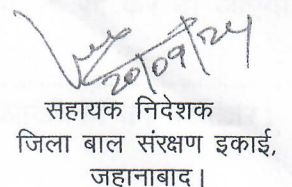 20/09/24
सहायक निदेशक
जिला बाल संरक्षण इकाई,
जहानाबाद।